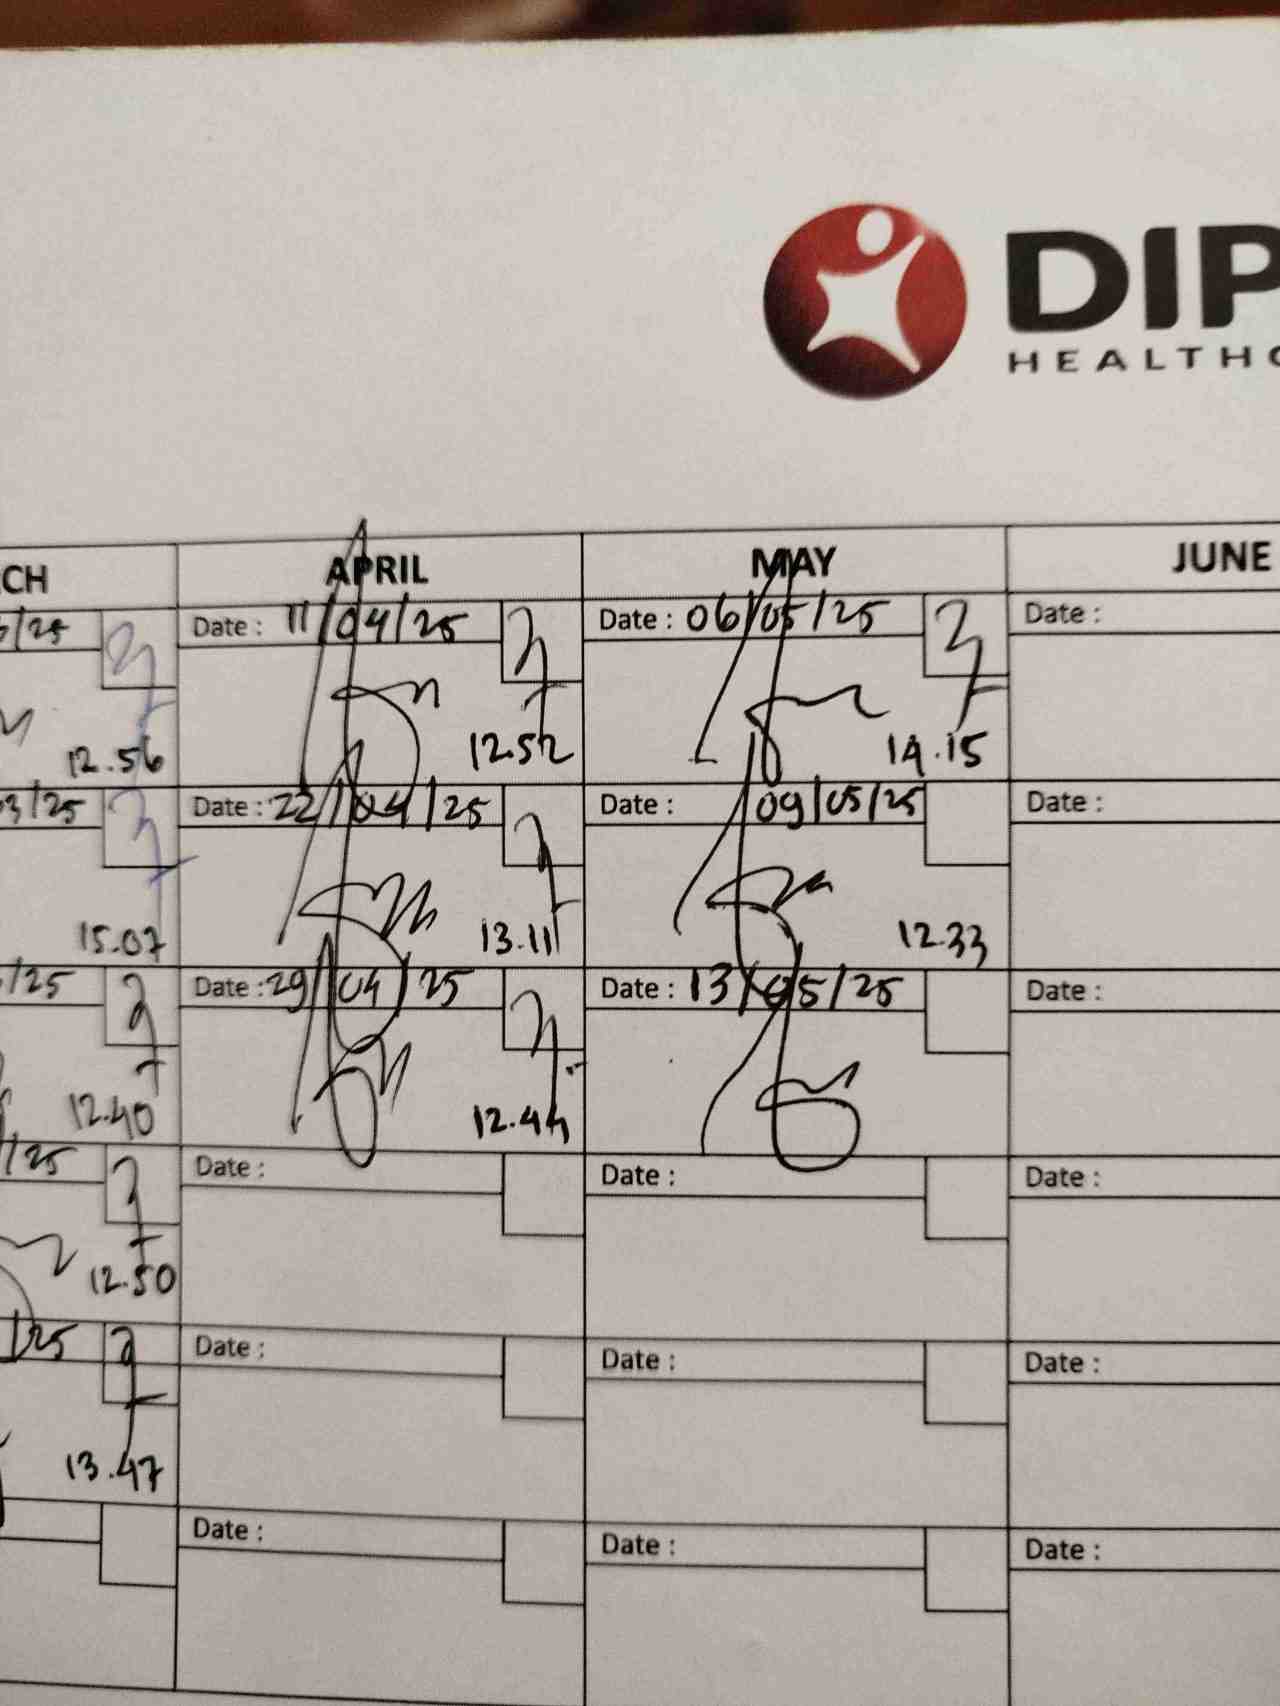 DIP
HEALTHC
CH APRIL MAY JUNE
/25 Date : 11/04/25 Date : 06/05/25 Date :
12.56 12.52 14.15
03/25 Date : 22/04/25 Date : 09/05/25 Date :
15.07 13.11 12.33
/25 Date : 29/04/25 Date : 13/05/25 Date :
12.40 12.44
/25 Date : Date : Date :
12.50
/25 Date : Date : Date :
13.47
Date : Date : Date :